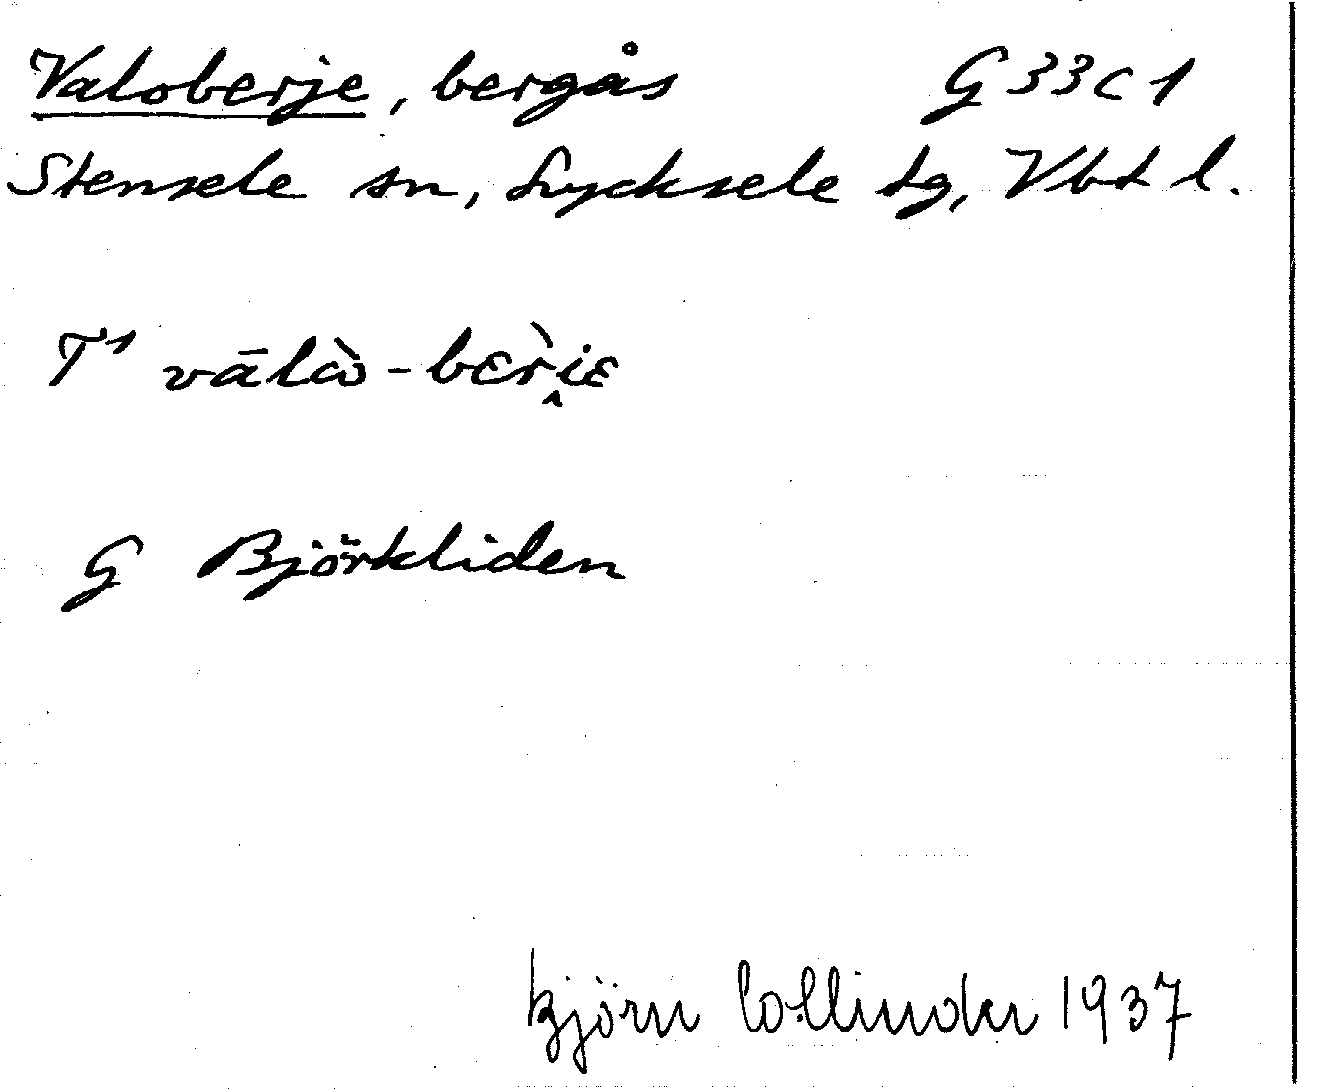 Valoberje, bergås G33C1
Stensele sn, Lycksele tg, Vbt l.
T1 vālὼ-bɛr̀i̭ɛ
G Björkliden
Björn Collinder 1937